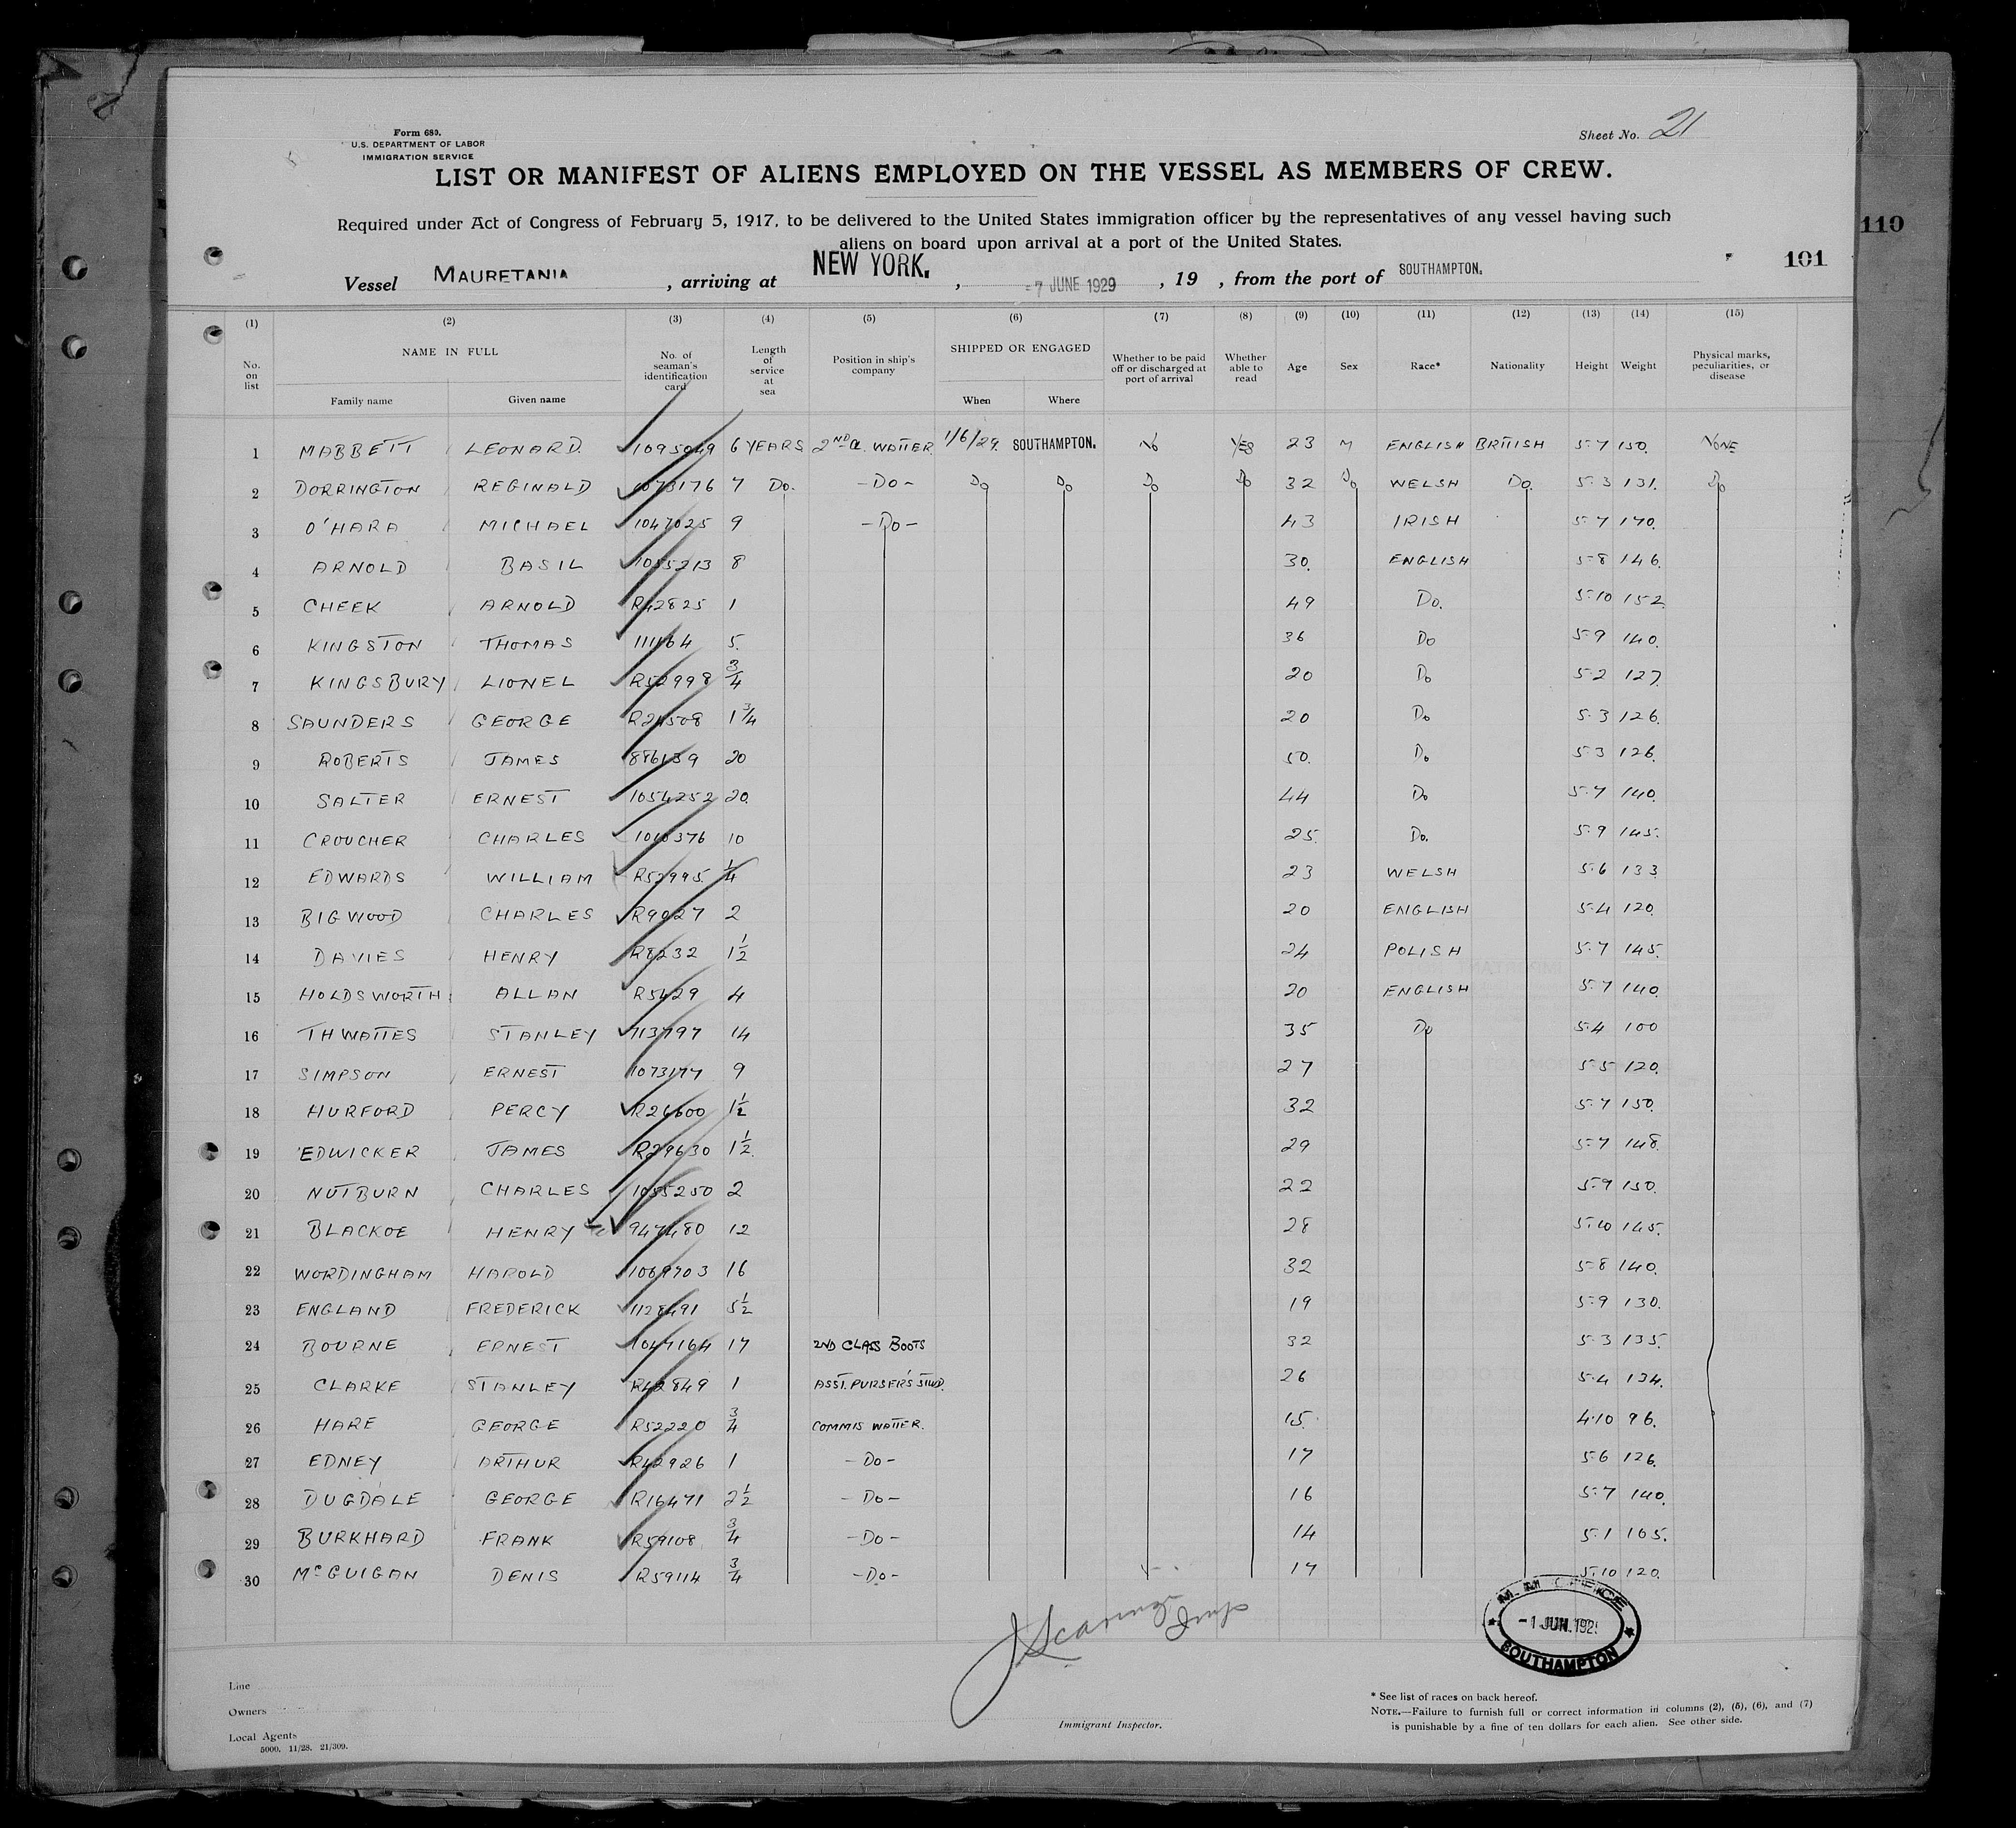 Form 680.
U.S. DEPARTMENT OF LABOR
IMMIGRATION SERVICE
Sheet No. 21
LIST OR MANIFEST OF ALIENS EMPLOYED ON THE VESSEL AS MEMBERS OF CREW.
Required under Act of Congress of February 5, 1917, to be delivered to the United States immigration officer by the representatives of any vessel having such
aliens on board upon arrival at a port of the United States.
110
101
Vessel MAURETANIA , arriving at NEW YORK. , -7 JUNE 1929 , 19 , from the port of SOUTHAMPTON.
(1) (2) (3) (4) (5) (6) (7) (8) (9) (10) (11) (12) (13) (14) (15)
No. on list NAME IN FULL Family name Given name No. of seaman's identification card Length of service at sea Position in ship's company SHIPPED OR ENGAGED When Where Whether to be paid off or discharged at port of arrival Whether able to read Age Sex Race* Nationality Height Weight Physical marks, peculiarities, or disease
1 MABBETT LEONARD. 1095049 6 YEARS 2ND CL. WAITER 1/6/29. SOUTHAMPTON. NO YES 23 M ENGLISH BRITISH 5-7 150. NONE
2 DORRINGTON REGINALD 1073176 7 DO. -DO- DO DO DO DO 32 DO WELSH DO. 5-3 131. DO
3 O'HARA MICHAEL 1047025 9 -DO- 43 IRISH 5-7 170.
4 ARNOLD BASIL 1055213 8 30. ENGLISH 5-8 146.
5 CHEEK ARNOLD R42825 1 49 DO. 5-10 152
6 KINGSTON THOMAS 111164 5. 36 DO 5-9 140.
7 KINGSBURY LIONEL R52998 3/4 20 DO 5-2 127.
8 SAUNDERS GEORGE R24508 1 3/4 20 DO 5-3 126.
9 ROBERTS JAMES 886139 20 50. DO 5-3 126.
10 SALTER ERNEST 1054252 20. 44 DO 5-7 140.
11 CROUCHER CHARLES 1010376 10 25. DO. 5-9 145.
12 EDWARDS WILLIAM R52995 1/4 23 WELSH 5-6 133
13 BIGWOOD CHARLES R9027 2 20 ENGLISH 5-4 120.
14 DAVIES HENRY R8232 1 1/2 24 POLISH 5-7 145.
15 HOLDSWORTH ALLAN R5429 4 20 ENGLISH 5-7 140.
16 THWAITES STANLEY 713797 14 35 DO 5-4 100
17 SIMPSON ERNEST 1073177 9 27 5-5 120.
18 HURFORD PERCY R26600 1 1/2 32 5-7 150.
19 EDWICKER JAMES R29630 1 1/2 29 5-7 148.
20 NUTBURN CHARLES 1055250 2 22 5-9 150.
21 BLACKOE HENRY 947480 12 28 5-10 145.
22 WORDINGHAM HAROLD 1069703 16 32 5-8 140.
23 ENGLAND FREDERICK 1128491 5 1/2 19 5-9 130.
24 BOURNE ERNEST 1047164 17 2ND CLASS BOOTS 32 5-3 135.
25 CLARKE STANLEY R42849 1 ASST. PURSER'S STWD. 26 5-4 134.
26 HARE GEORGE R52220 3/4 COMMIS WAITER. 15 4-10 96.
27 EDNEY ARTHUR R42926 1 -DO- 17 5-6 126.
28 DUGDALE GEORGE R16471 2 1/2 -DO- 16 5-7 140.
29 BURKHARD FRANK R59108 3/4 -DO- 14 5-1 105.
30 McGUIGAN DENIS R59114 3/4 -DO- 17 5-10 120.
SOUTHAMPTON
-1 JUN. 192
Line
Owners
Local Agents
5000. 11/28. 21/309.
Immigrant Inspector.
* See list of races on back hereof.
NOTE.—Failure to furnish full or correct information in columns (2), (5), (6), and (7)
is punishable by a fine of ten dollars for each alien. See other side.